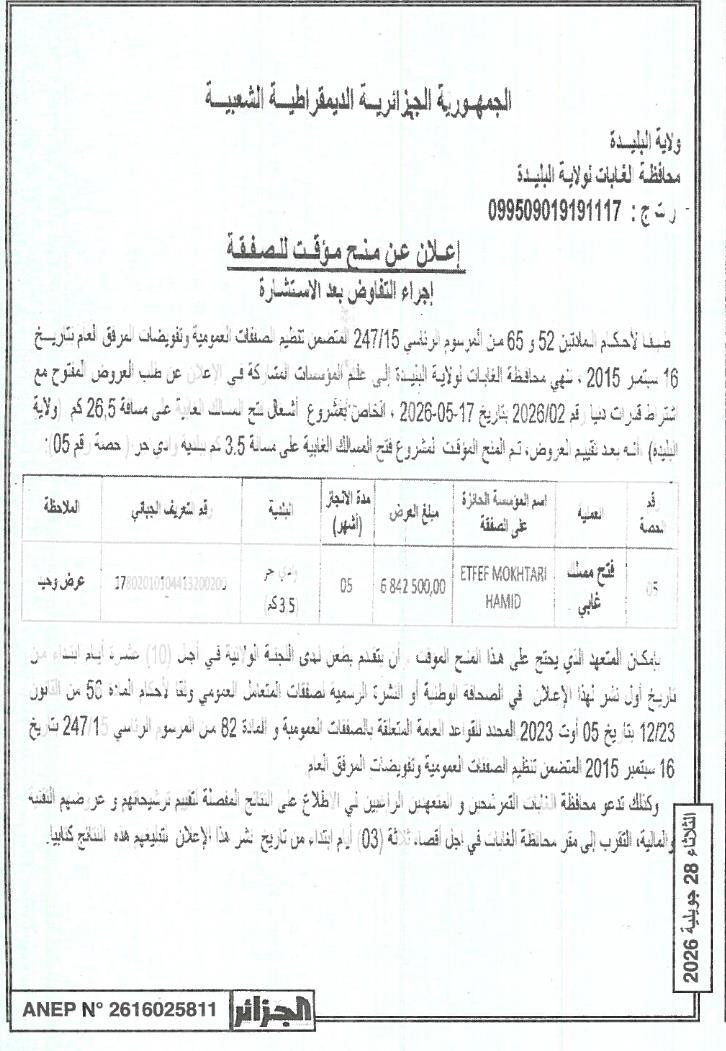 الجمهورية الجزائرية الديمقراطية الشعبية
ولاية البليدة
محافظة الغابات لولاية البليدة
ر ت ج : 099509019191117
إعلان عن منح مؤقت للصفقة
إجراء التفاوض بعد الاستشارة
طبقا لأحكام المادتين 52 و 65 من المرسوم الرئاسي 247/15 المتضمن تنظيم الصفقات العمومية وتفويضات المرفق العام بتاريخ
16 سبتمبر 2015 ، تنهي محافظة الغابات لولاية البليدة إلى علم المؤسسات المشاركة في الإعلان عن طلب العروض المفتوح مع
اشتراط قدرات دنيا رقم 2026/02 بتاريخ 17-05-2026 ، الخاص بمشروع أشغال فتح المسالك الغابية على مسافة 26,5 كم (ولاية
البليدة) ، أنه بعد تقييم العروض، تم المنح المؤقت لمشروع فتح المسالك الغابية على مسافة 3.5 كم ببلدية وادي جر ( حصة رقم 05):
رقم الحصة | العملية | اسم المؤسسة الحائزة على الصفقة | مبلغ العرض | مدة الانجاز (أشهر) | البلدية | رقم التعريف الجبائي | الملاحظة
05 | فتح مسلك غابي | ETFEF MOKHTARI HAMID | 6 842 500,00 | 05 | وادي جر (3.5 كم) | | عرض وحيد
بإمكان المتعهد الذي يحتج على هذا المنح المؤقت ، أن يتقدم بطعن لدى اللجنة الولائية في أجل (10) عشرة أيام ابتداء من
تاريخ أول نشر لهذا الإعلان في الصحافة الوطنية أو النشرة الرسمية لصفقات المتعامل العمومي وفقا لأحكام المادة 56 من القانون
12/23 بتاريخ 05 أوت 2023 المحدد للقواعد العامة المتعلقة بالصفقات العمومية و المادة 82 من المرسوم الرئاسي 247/15 بتاريخ
16 سبتمبر 2015 المتضمن تنظيم الصفقات العمومية وتفويضات المرفق العام
وكذلك تدعو محافظة الغابات المترشحين و المتعهدين الراغبين في الاطلاع على النتائج المفصلة لتقييم ترشيحاتهم و عروضهم التقنية
والمالية، التقرب إلى مقر محافظة الغابات في أجل أقصاه ثلاثة (03) أيام ابتداء من تاريخ نشر هذا الإعلان لتبليغهم هذه النتائج كتابيا.
الثلاثاء 28 جويلية 2026
ANEP N° 2616025811
الجزائر